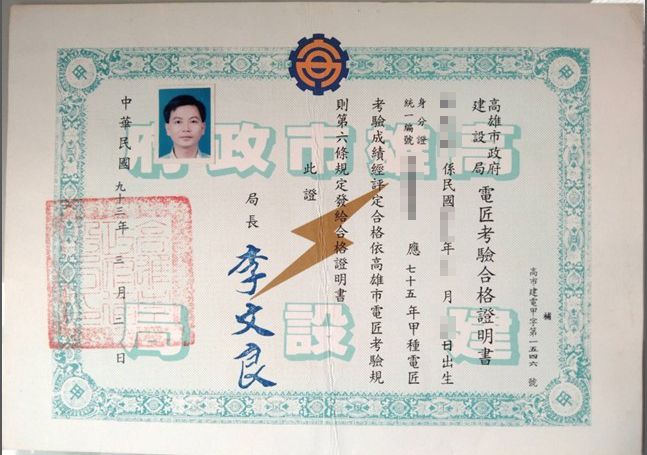 高雄市政府
建設局
電匠考驗合格證明書
補
高市建電甲字第一五四六號
係民國 年 月 日出生
身分證
統一編號
應七十五年甲種電匠
考驗成績經評定合格依高雄市電匠考驗規
則第六條規定發給合格證明書
此證
局長 李文良
中華民國九十三年三月二日
高雄市政府
建設局